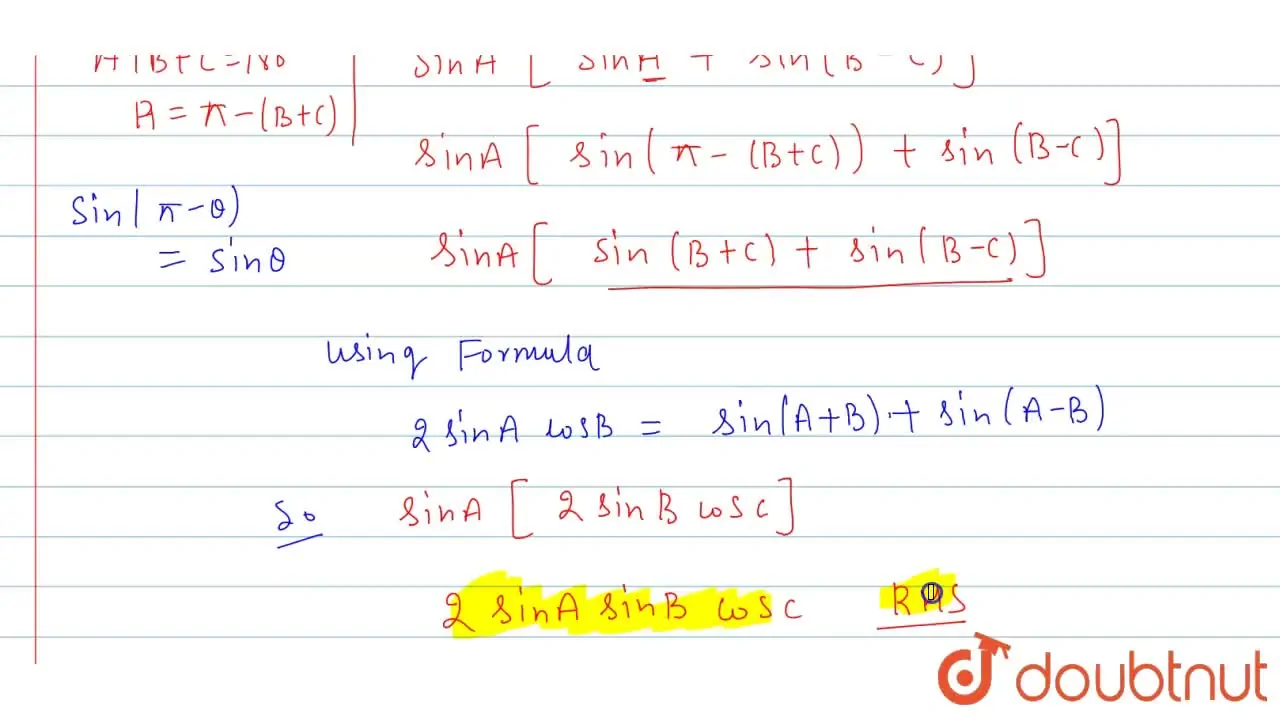 A+B+C=180
A = π-(B+C)
sinA [ sinA + sin(B-C)]
sinA [ sin(π-(B+C)) + sin(B-C)]
sin(π-θ)
= sinθ
sinA [ sin(B+C) + sin(B-C)]
using Formula
2 sinA cosB = sin(A+B) + sin(A-B)
So sinA [ 2 sinB cosC]
2 sinA sinB cosC RHS
doubtnut